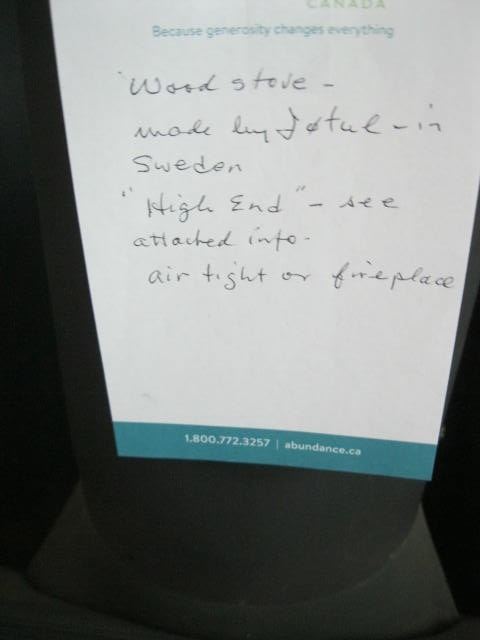 CANADA
Because generosity changes everything
Wood stove -
made by Jøtul - in
Sweden
"High End" - see
attached info.
air tight or fireplace
1.800.772.3257 | abundance.ca